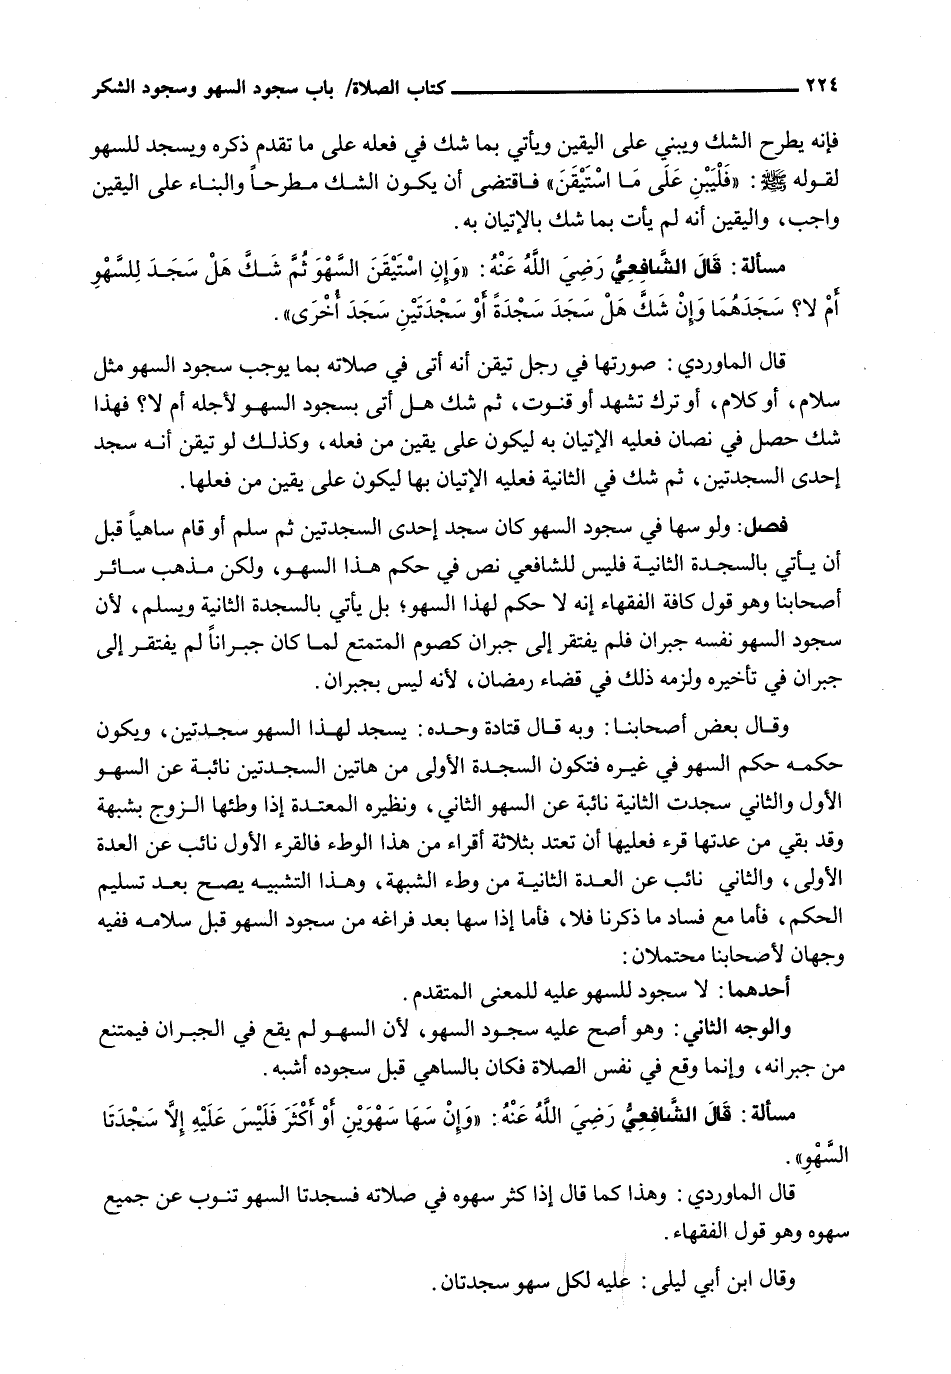 ٢٢٤ ــــــــــــــــــــــــــــــــــــــ كتاب الصلاة/ باب سجود السهو وسجود الشكر
فإنه يطرح الشك ويبني على اليقين ويأتي بما شك في فعله على ما تقدم ذكره ويسجد للسهو
لقوله ﷺ: «فَلْيَبْنِ عَلَى مَا اسْتَيْقَنَ» فاقتضى أن يكون الشك مطرحاً والبناء على اليقين
واجب، واليقين أنه لم يأت بما شك بالإتيان به.
مسألة: قَالَ الشَّافِعِيُّ رَضِيَ اللَّهُ عَنْهُ: «وَإِنِ اسْتَيْقَنَ السَّهْوَ ثُمَّ شَكَّ هَلْ سَجَدَ لِلسَّهْوِ
أَمْ لا؟ سَجَدَهُمَا وَإِنْ شَكَّ هَلْ سَجَدَ سَجْدَةً أَوْ سَجْدَتَيْنِ سَجَدَ أُخْرَى».
قال الماوردي: صورتها في رجل تيقن أنه أتى في صلاته بما يوجب سجود السهو مثل
سلام، أو كلام، أو ترك تشهد أو قنوت، ثم شك هل أتى بسجود السهو لأجله أم لا؟ فهذا
شك حصل في نصان فعليه الإتيان به ليكون على يقين من فعله، وكذلك لو تيقن أنه سجد
إحدى السجدتين، ثم شك في الثانية فعليه الإتيان بها ليكون على يقين من فعلها.
فصل: ولو سها في سجود السهو كان سجد إحدى السجدتين ثم سلم أو قام ساهياً قبل
أن يأتي بالسجدة الثانية فليس للشافعي نص في حكم هذا السهو، ولكن مذهب سائر
أصحابنا وهو قول كافة الفقهاء إنه لا حكم لهذا السهو؛ بل يأتي بالسجدة الثانية ويسلم، لأن
سجود السهو نفسه جبران فلم يفتقر إلى جبران كصوم المتمتع لما كان جبراناً لم يفتقر إلى
جبران في تأخيره ولزمه ذلك في قضاء رمضان، لأنه ليس بجبران.
وقال بعض أصحابنا: وبه قال قتادة وحده: يسجد لهذا السهو سجدتين، ويكون
حكمه حكم السهو في غيره فتكون السجدة الأولى من هاتين السجدتين نائبة عن السهو
الأول والثاني سجدت الثانية نائبة عن السهو الثاني، ونظيره المعتدة إذا وطئها الزوج بشبهة
وقد بقي من عدتها قرء فعليها أن تعتد بثلاثة أقراء من هذا الوطء فالقرء الأول نائب عن العدة
الأولى، والثاني نائب عن العدة الثانية من وطء الشبهة، وهذا التشبيه يصح بعد تسليم
الحكم، فأما مع فساد ما ذكرنا فلا، فأما إذا سها بعد فراغه من سجود السهو قبل سلامه ففيه
وجهان لأصحابنا محتملان:
أحدهما: لا سجود للسهو عليه للمعنى المتقدم.
والوجه الثاني: وهو أصح عليه سجود السهو، لأن السهو لم يقع في الجبران فيمتنع
من جبرانه، وإنما وقع في نفس الصلاة فكان بالساهي قبل سجوده أشبه.
مسألة: قَالَ الشَّافِعِيُّ رَضِيَ اللَّهُ عَنْهُ: «وَإِنْ سَهَا سَهْوَيْنِ أَوْ أَكْثَرَ فَلَيْسَ عَلَيْهِ إِلَّا سَجْدَتَا
السَّهْوِ».
قال الماوردي: وهذا كما قال إذا كثر سهوه في صلاته فسجدتا السهو تنوب عن جميع
سهوه وهو قول الفقهاء.
وقال ابن أبي ليلى: عليه لكل سهو سجدتان.